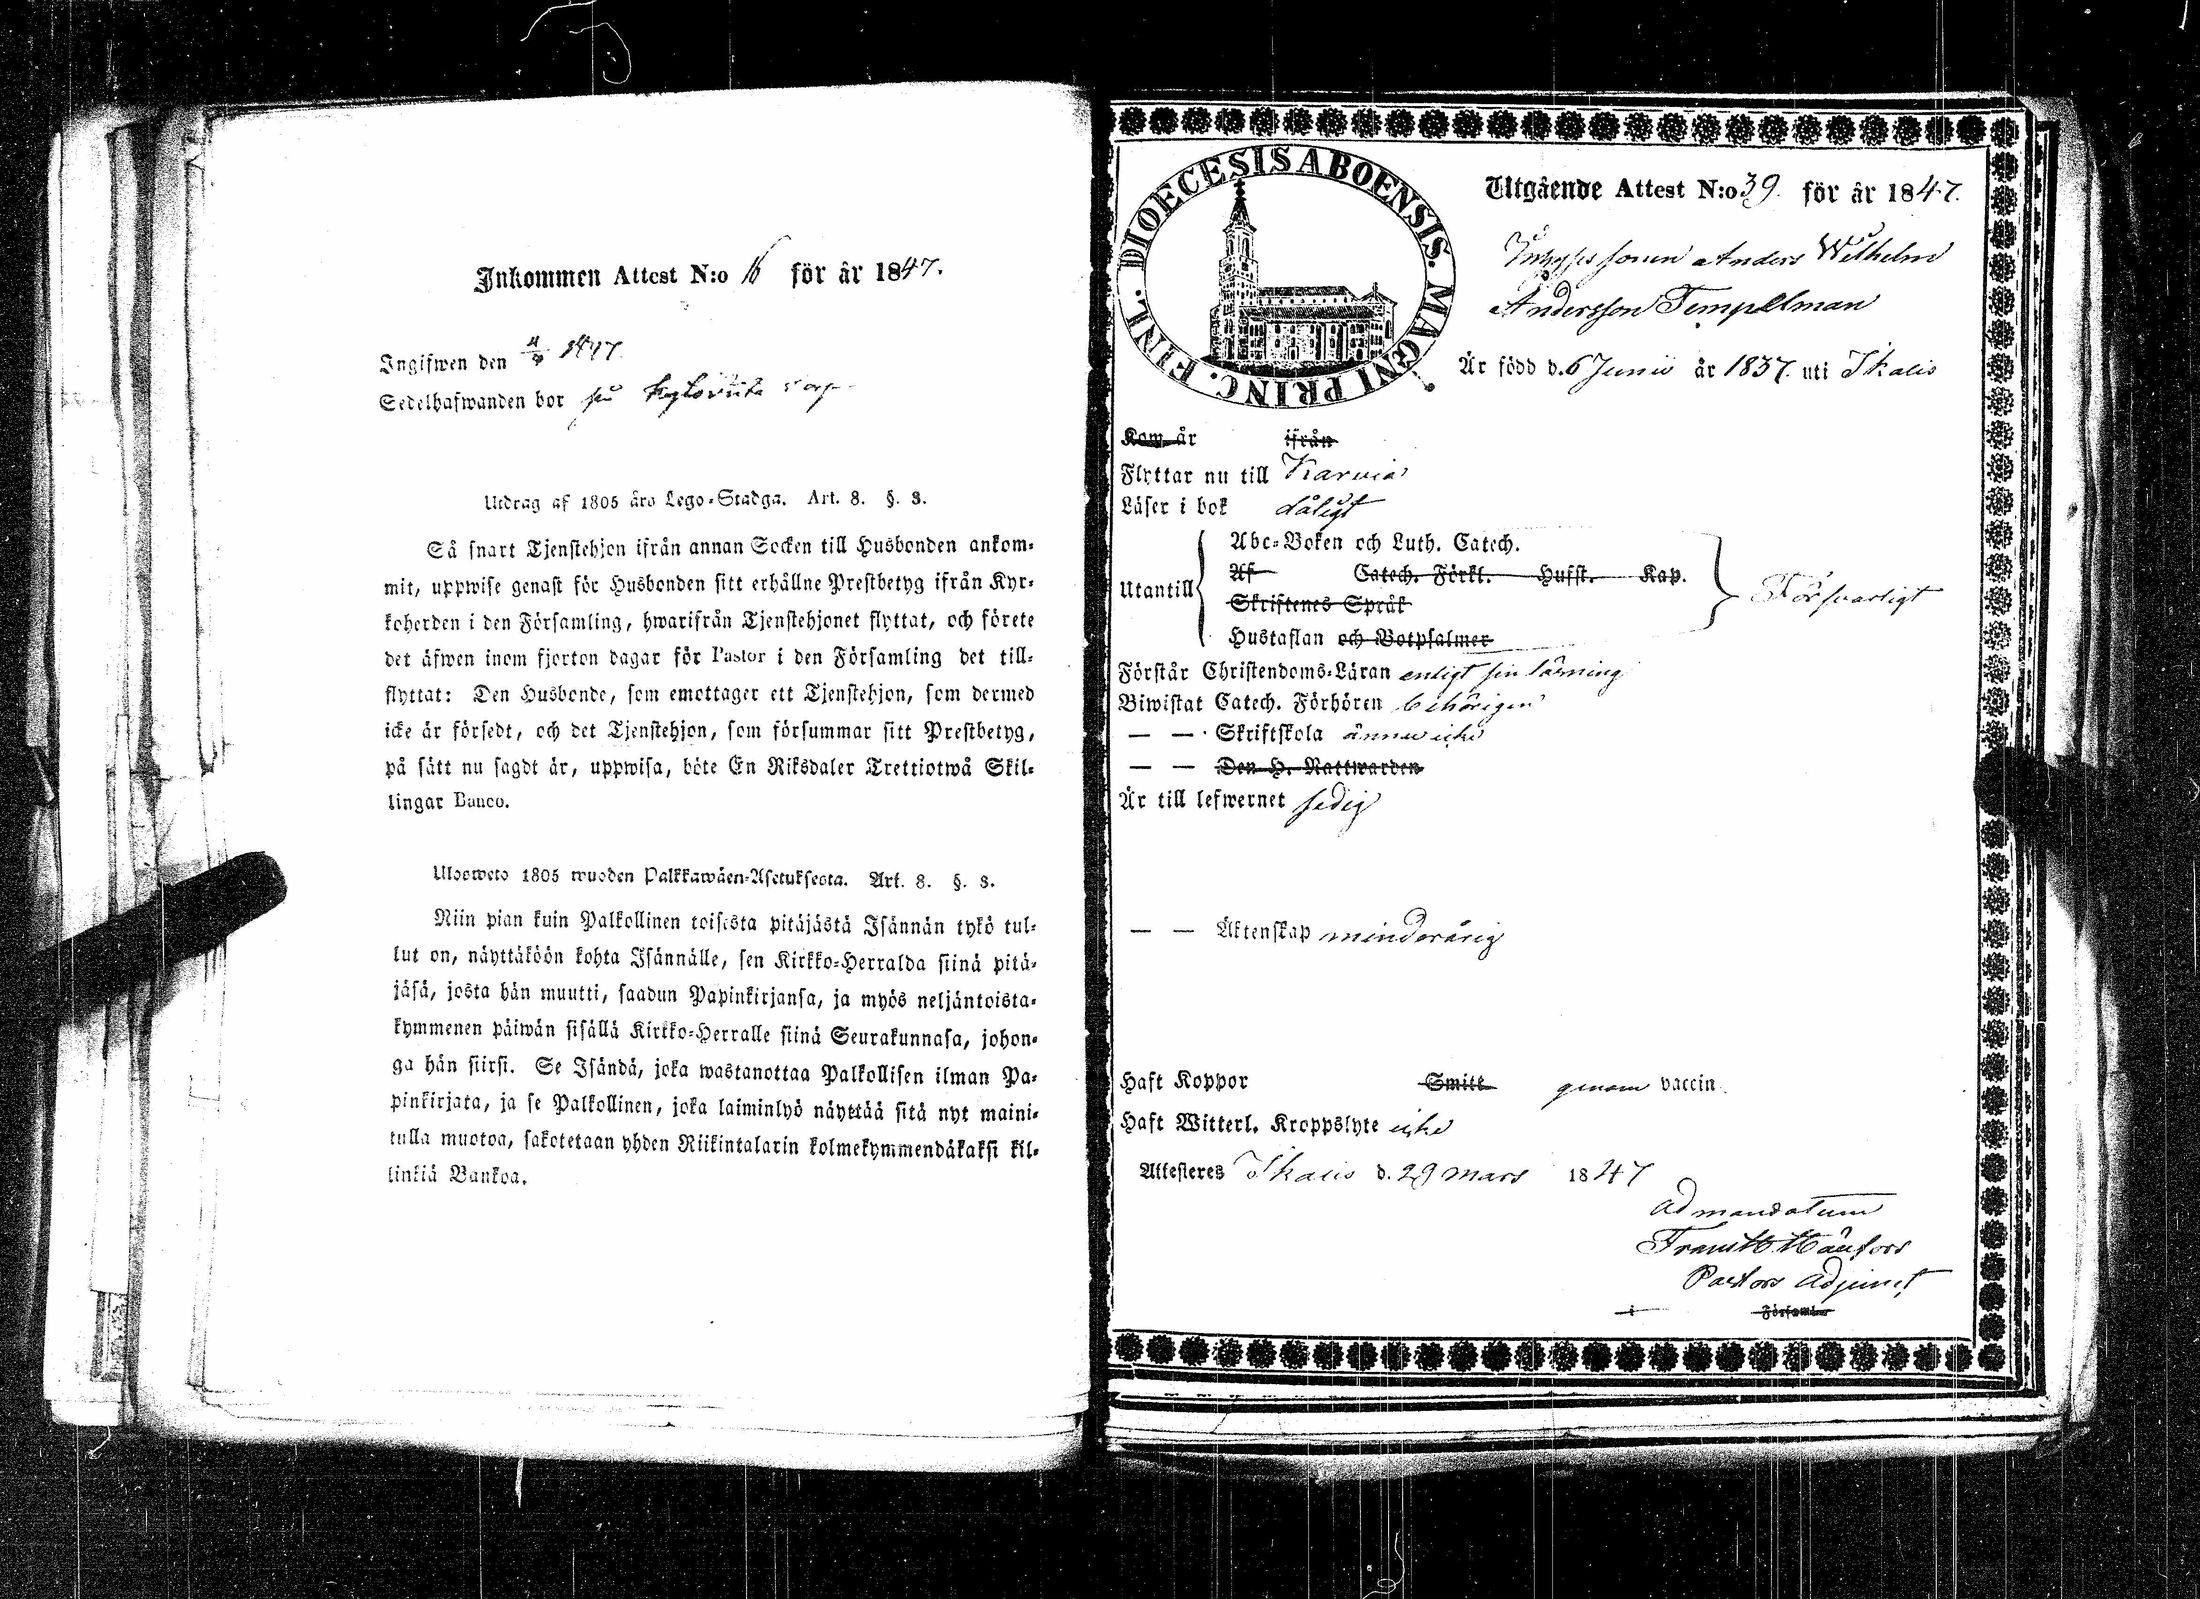 Inkommen Attest N:o 16 för år 1847.
Ingifwen den 4/7 1847.
Sedelhafwanden bor på torp
Utdrag af 1805 års Lego-Stadga. Art. 8. §. 3.
Så snart Tjenstehjon ifrån annan Socken till Husbonden ankom-
mit, uppwise genast för Husbonden sitt erhållne Prestbetyg ifrån Kyr-
koherden i den Församling, hwarifrån Tjenstehjonet flyttat, och förete
det äfwen inom fjorton dagar för Pastor i den Församling det till-
flyttat: Den Husbonde, som emottager ett Tjenstehjon, som dermed
icke är försedt, och det Tjenstehjon, som försummar sitt Prestbetyg,
på sätt nu sagdt är, uppwisa, böte En Riksdaler Trettiotwå Skil-
lingar Banco.
Uloswето 1805 wuoden Palkkawäen-Asetuksesta. Art. 8. §. 3.
Niin pian kuin Palkollinen toisesta pitäjästä Isännän tykö tul-
lut on, näyttäköön kohta Isännälle, sen Kirkko-Herralda siinä pitä-
jäsä, josta hän muutti, saadun Papinkirjansa, ja myös neljäntoista-
kymmenen päiwän sisällä Kirkko-Herralle siinä Seurakunnasa, johon-
ga hän siirsi. Se Isändä, joka wastanottaa Palkollisen ilman Pa-
pinkirjata, ja se Palkollinen, joka laiminlyö näyttää sitä nyt maini-
tulla muotoa, sakotetaan yhden Riikintalarin kolmekymmendäkaksi kil-
linkiä Bankoa.
DIOECESIS ABOENSIS. MAGNI PRINC. FINL.
Utgående Attest N:o 39. för år 1847.
Inhyses sonen Anders Wilhelm
Andersson Tempelman
Är född d. 6 Junii år 1837. uti Ikalis
Kom år ifrån
Flyttar nu till Karvia
Läser i bok dåligt
Utantill
Abc-Boken och Luth. Catech.
Af Catech. Förkl. Husst. Kap.
Skriftenes Språk
Hustaflan och Botpsalmer
Försvarligt
Förstår Christendoms-Läran enligt sin lärning
Biwistat Catech. Förhören behörigen
— — Skriftskola ännu icke
— — Den H. Nattwarden
Är till lefwernet sedig
— — Äktenskap minderårig
Haft Koppor Smitt. genom vaccin.
Haft Witterl. Kroppslyte icke
Attesteres Ikalis d. 29 mars 1847
ad mandatum
Pastors Adjunct
i Församl.